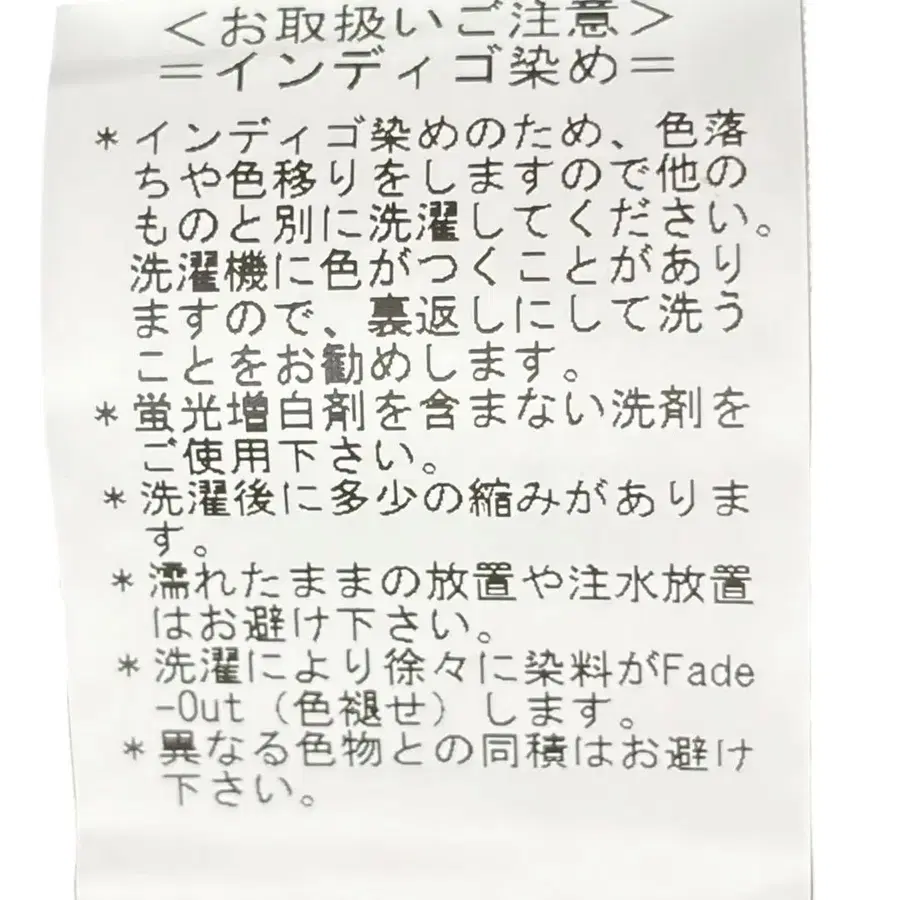 ＜お取扱いご注意＞
＝インディゴ染め＝
＊インディゴ染めのため、色落
ちや色移りをしますので他の
ものと別に洗濯してください。
洗濯機に色がつくことがあり
ますので、裏返しにして洗う
ことをお勧めします。
＊蛍光増白剤を含まない洗剤を
ご使用下さい。
＊洗濯後に多少の縮みがありま
す。
＊濡れたままの放置や注水放置
はお避け下さい。
＊洗濯により徐々に染料がFade
-Out（色褪せ）します。
＊異なる色物との同積はお避け
下さい。